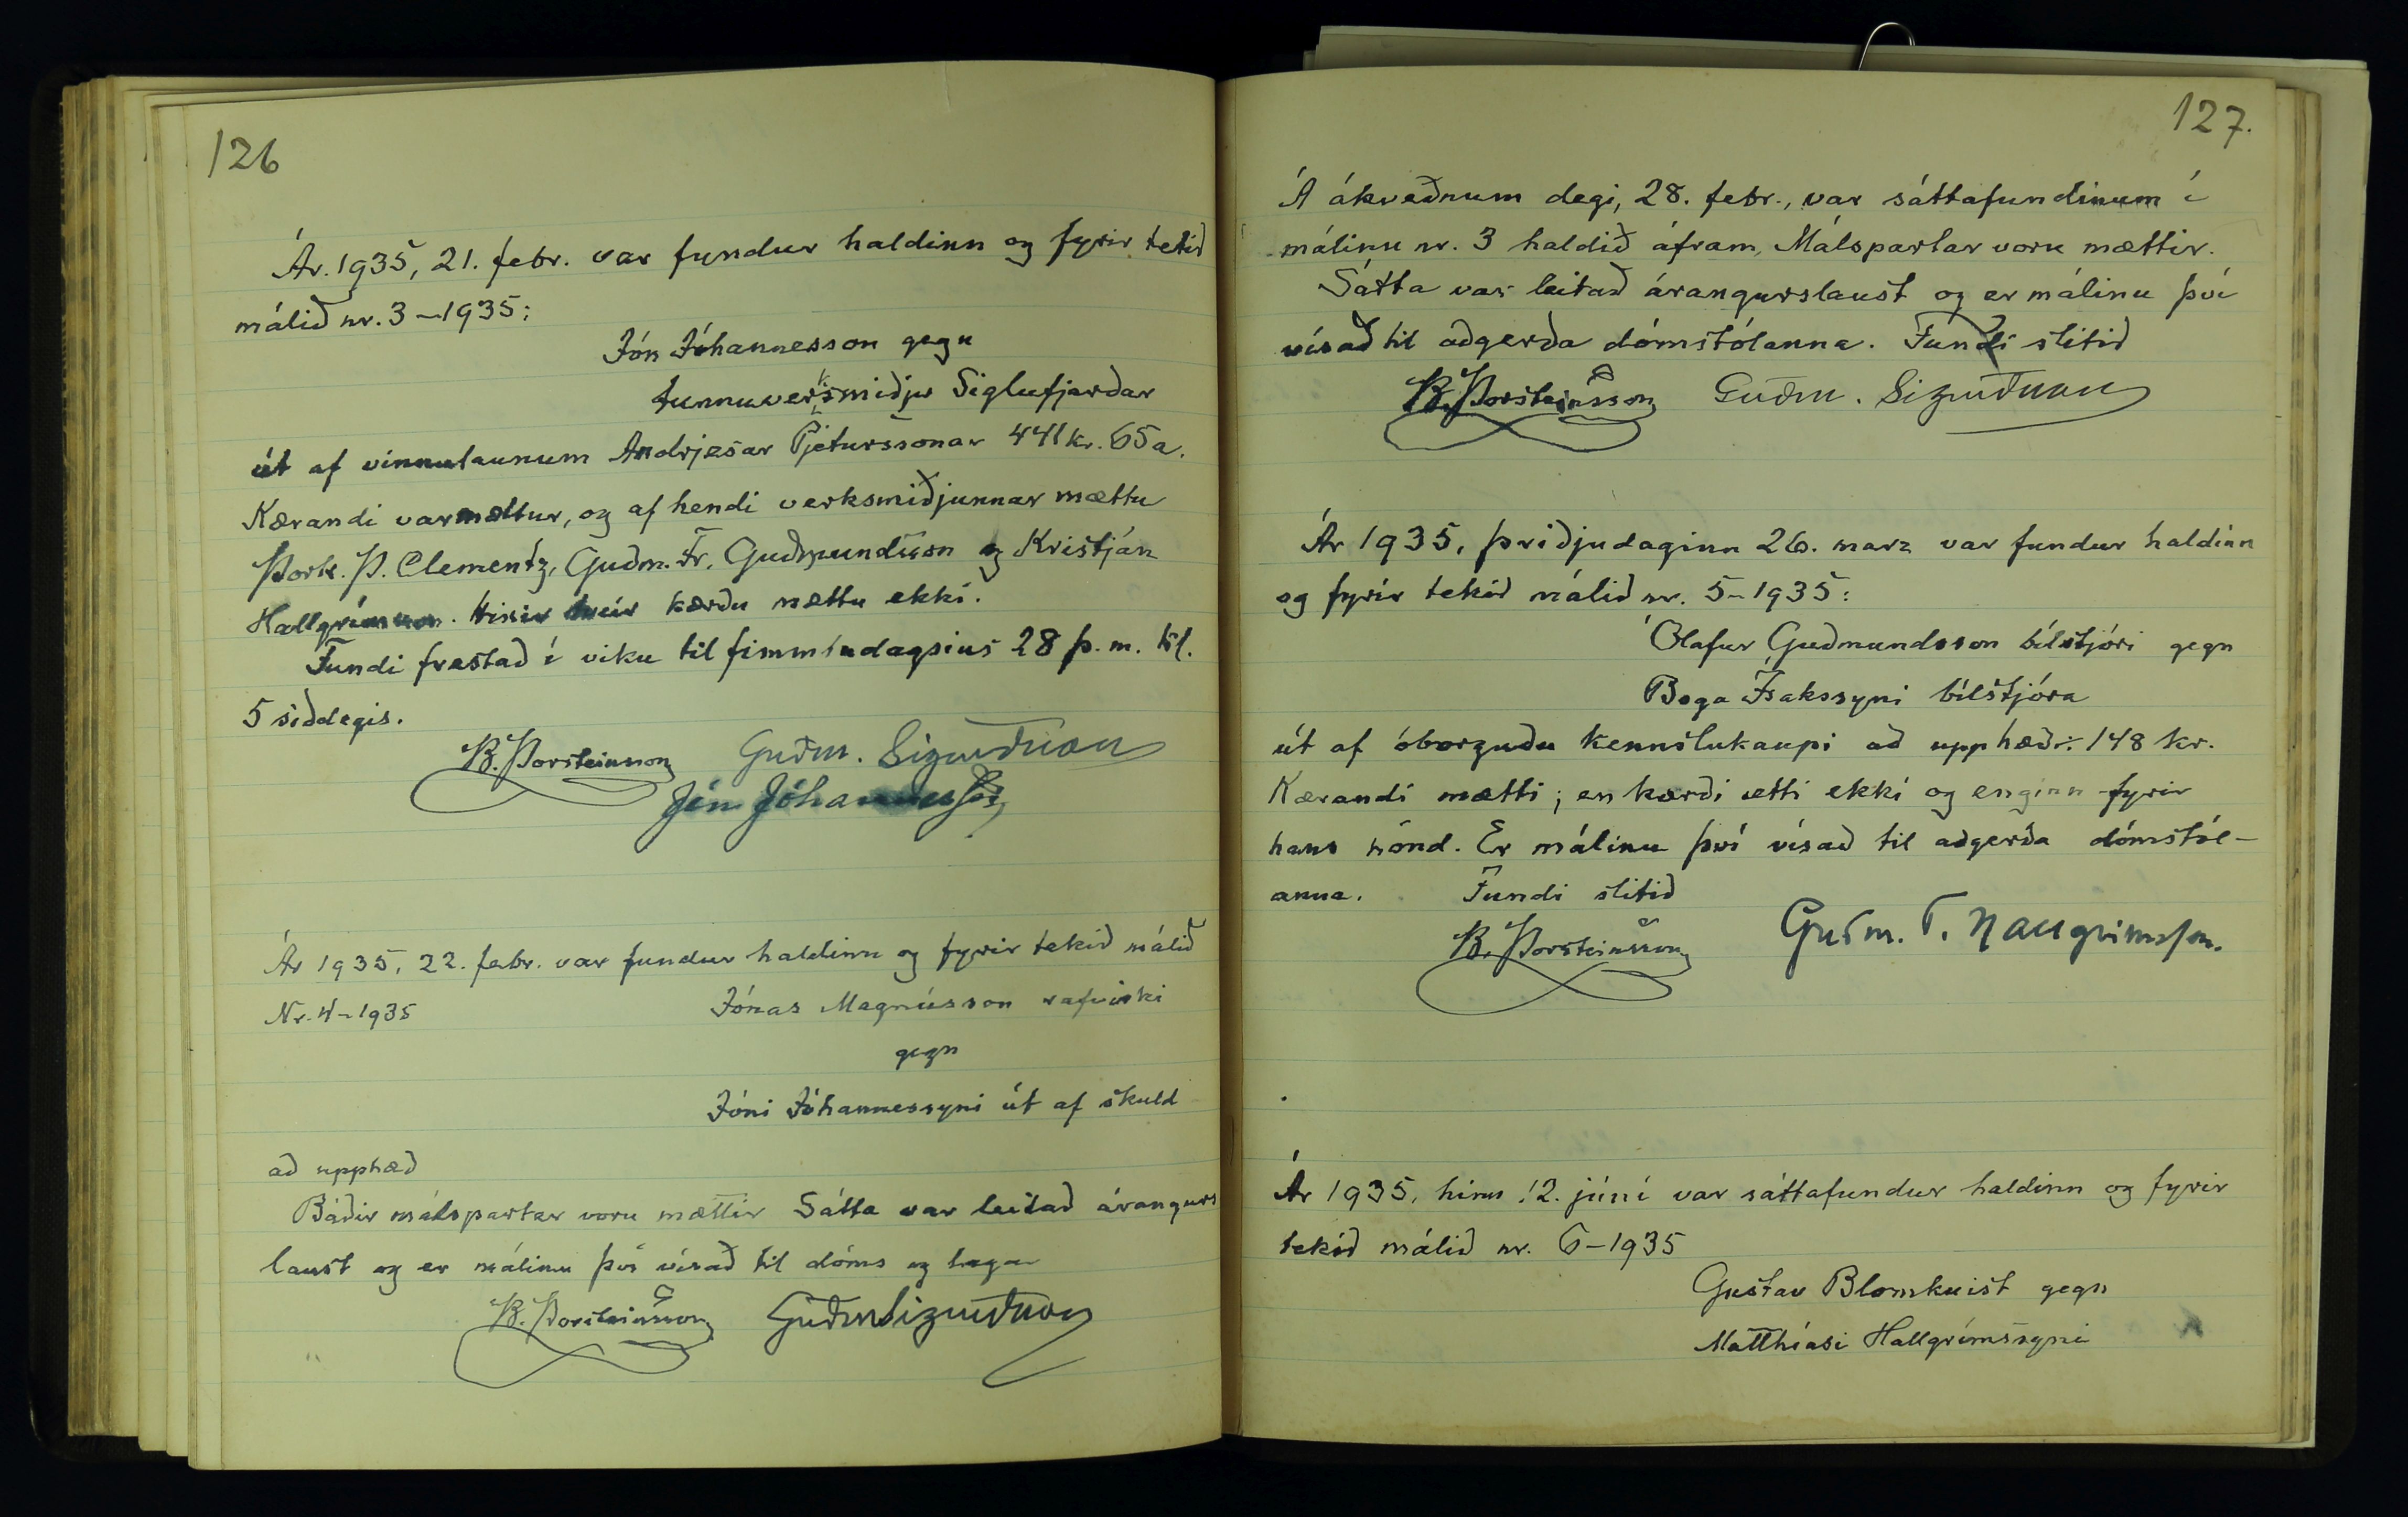 126
Ár. 1935, 21. febr. var fundur haldinn og fyrir tekið
málið nr. 3-1935:
Jón Jóhannesson gegn
tunnuverksmiðju Siglufjarðar
út af vinnulaunum Andrjesar Pjeturssonar 441 kr. 65 a.
Kærandi var mættur, og af hendi verksmiðjunnar mættu
Þork. Þ. Clementz, Guðm. Fr. Guðmundsson og Kristján
Hallgrímsson. Hinir tveir kærðu mættu ekki.
Fundi frestað í viku til fimmtudagsins 28 þ. m. kl.
5 síðdegis.
B. Þorsteinsson Guðm. Sigurðsson
Jón Jóhannesson
Ár 1935, 22. febr. var fundur haldinn og fyrir tekið málið
Nr. 4-1935 Jónas Magnússon rafvirki
gegn
Jóni Jóhannessyni út af skuld
að upphæð
Báðir málspartar voru mættir Sátta var leitað árangurs
laust og er málinu því vísað til dóms og laga
B. Þorsteinsson Guðm Sigurðsson
127.
Á ákveðnum degi, 28. febr., var sáttafundinum í
málinu nr. 3 haldið áfram, Málspartar voru mættir.
Sátta var leitað árangurslaust og er málinu því
vísað til aðgerða dómstólanna. Fundi slitið
B. Þorsteinsson Guðm. Sigurðsson
Ár 1935, þriðjudaginn 26. marz var fundur haldinn
og fyrir tekið málið nr. 5-1935:
Ólafur Guðmundsson bílstjóri gegn
Boga Ísakssyni bílstjóra
út af óborguðu kennslukaupi að upphæð: 148 kr.
Kærandi mætti; en kærði mætti ekki og enginn fyrir
hans hönd. Er málinu því vísað til aðgerða dómstól-
anna. Fundi slitið
B. Þorsteinsson Guðm. T. Hallgrimsson.
Ár 1935, hinn 12. júní var sáttafundur haldinn og fyrir
tekið málið nr. 6-1935
Gustav Blomkvist gegn
Matthíasi Hallgrímssyni